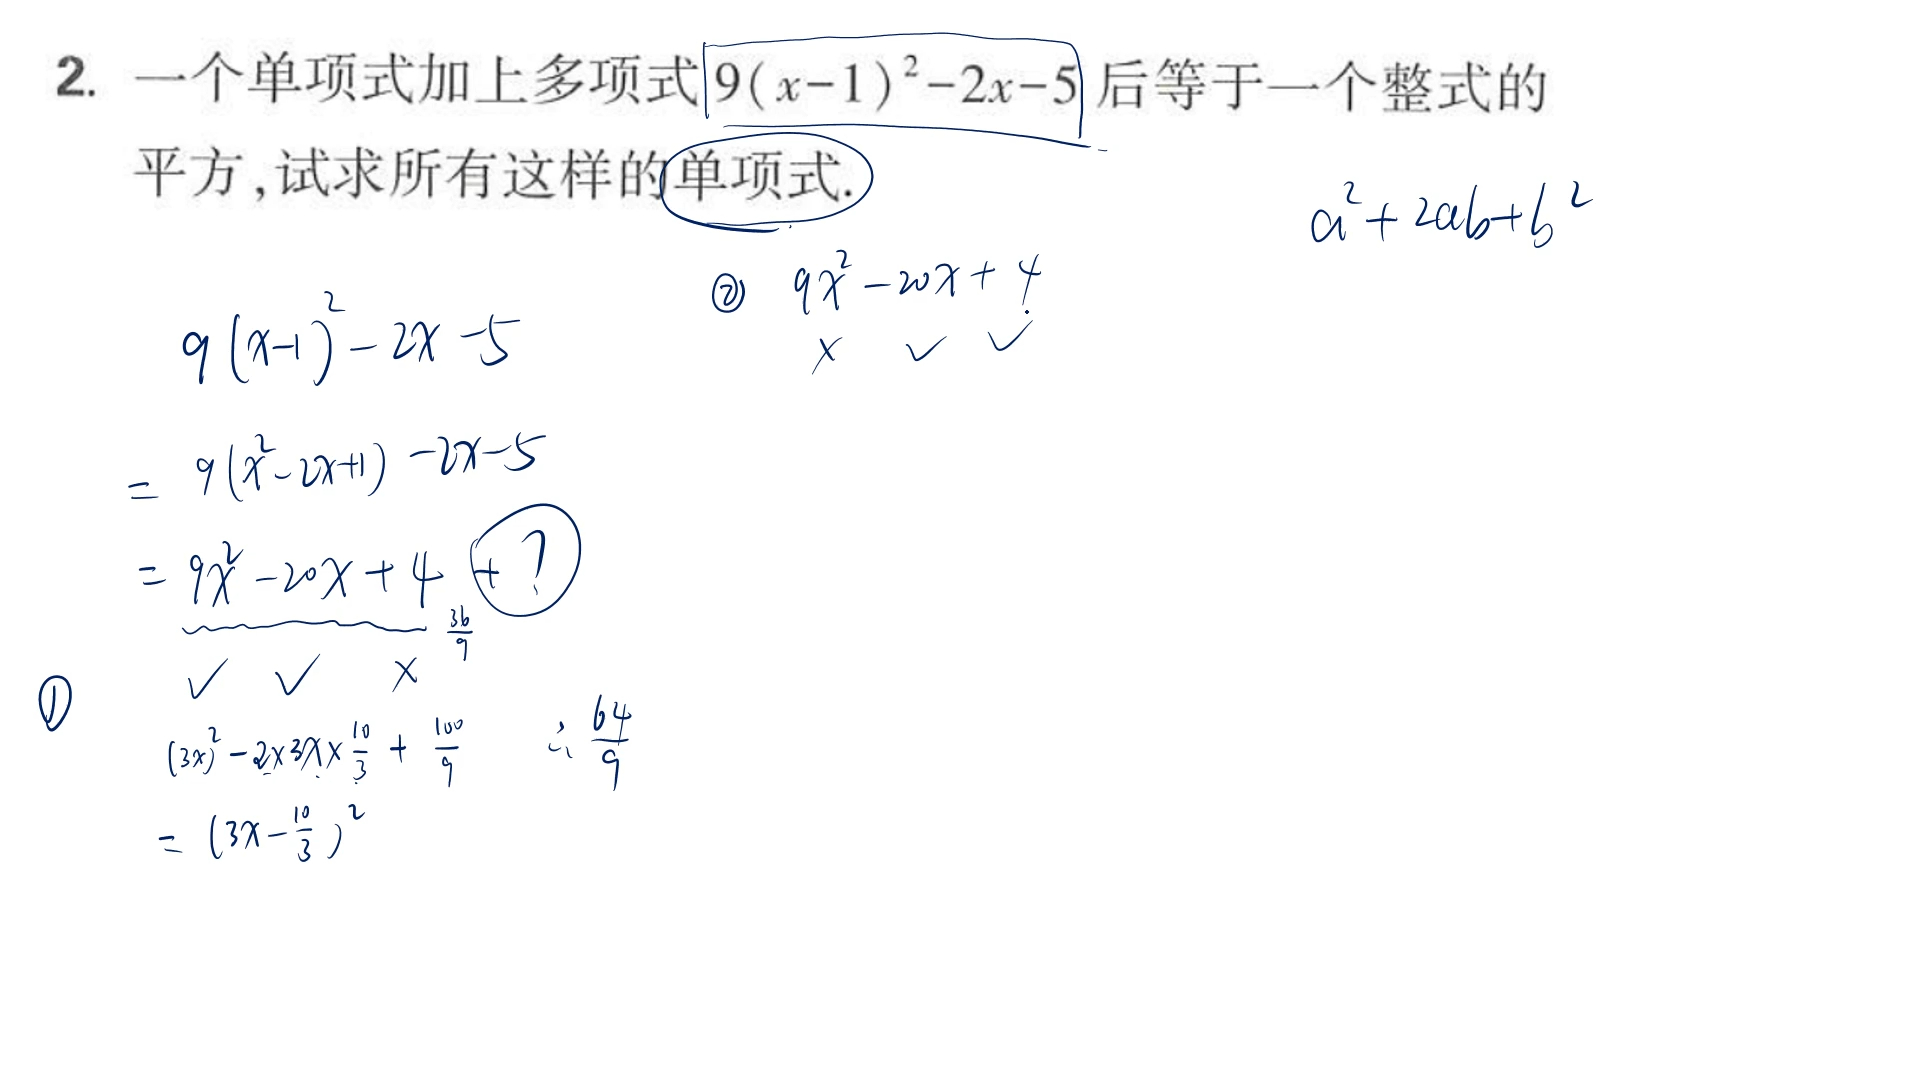 2. 一个单项式加上多项式9(x-1)²-2x-5后等于一个整式的
平方,试求所有这样的单项式.
a²+2ab+b²
② 9x²-20x+4
× ✓ ✓
9(x-1)²-2x-5
= 9(x²-2x+1)-2x-5
= 9x²-20x+4+?
36/9
✓ ✓ ×
①
(3x)²-2×3x×10/3+100/9 ∴ 64/9
= (3x-10/3)²